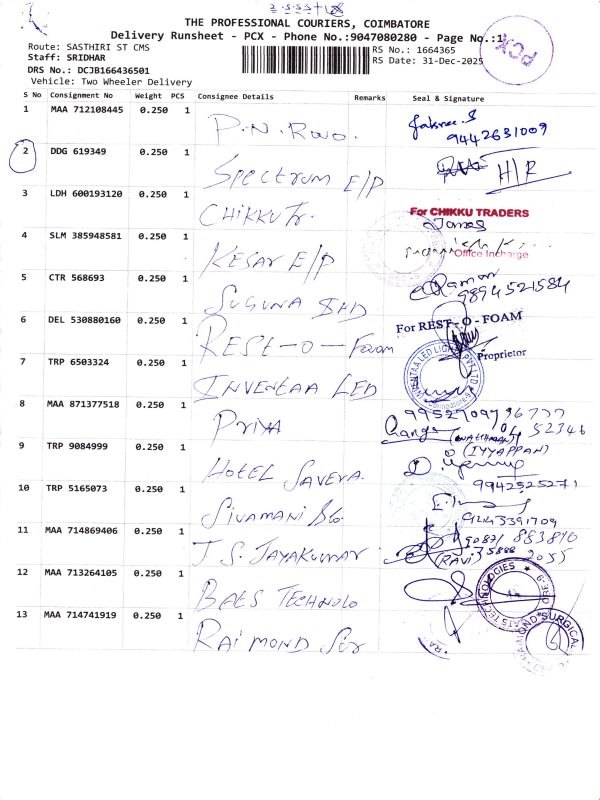 THE PROFESSIONAL COURIERS, COIMBATORE
Delivery Runsheet - PCX - Phone No.:9047080280 - Page No.:1
PCX
Route: SASTHIRI ST CMS
RS No.: 1664365
Staff: SRIDHAR
RS Date: 31-Dec-2025
DRS No.: DCJB166436501
Vehicle: Two Wheeler Delivery
S No Consignment No Weight PCS Consignee Details Remarks Seal & Signature
1 MAA 712108445 0.250 1 P.N. Rao.
9442631009
2 DDG 619349 0.250 1 Spectrum E/P H/R
3 LDH 600193120 0.250 1 CHIKKU Tr. For CHIKKU TRADERS
4 SLM 385948581 0.250 1 KESAV E/P Office Incharge
5 CTR 568693 0.250 1 SUGUNA Raman
9894521584
6 DEL 530880160 0.250 1 REST-O-Foam For REST-O-FOAM
Proprietor
7 TRP 6503324 0.250 1 INVENTAA LED
8 MAA 871377518 0.250 1 PRIYA
(IYYAPPAN)
9 TRP 9084999 0.250 1 HOTEL SAVERA
9942525271
10 TRP 5165073 0.250 1 SIVAMANI
11 MAA 714869406 0.250 1 T.S. JAYAKUMAR
(RAVI)
12 MAA 713264105 0.250 1 BATS TECHNOLO
13 MAA 714741919 0.250 1 RAIMOND Sur